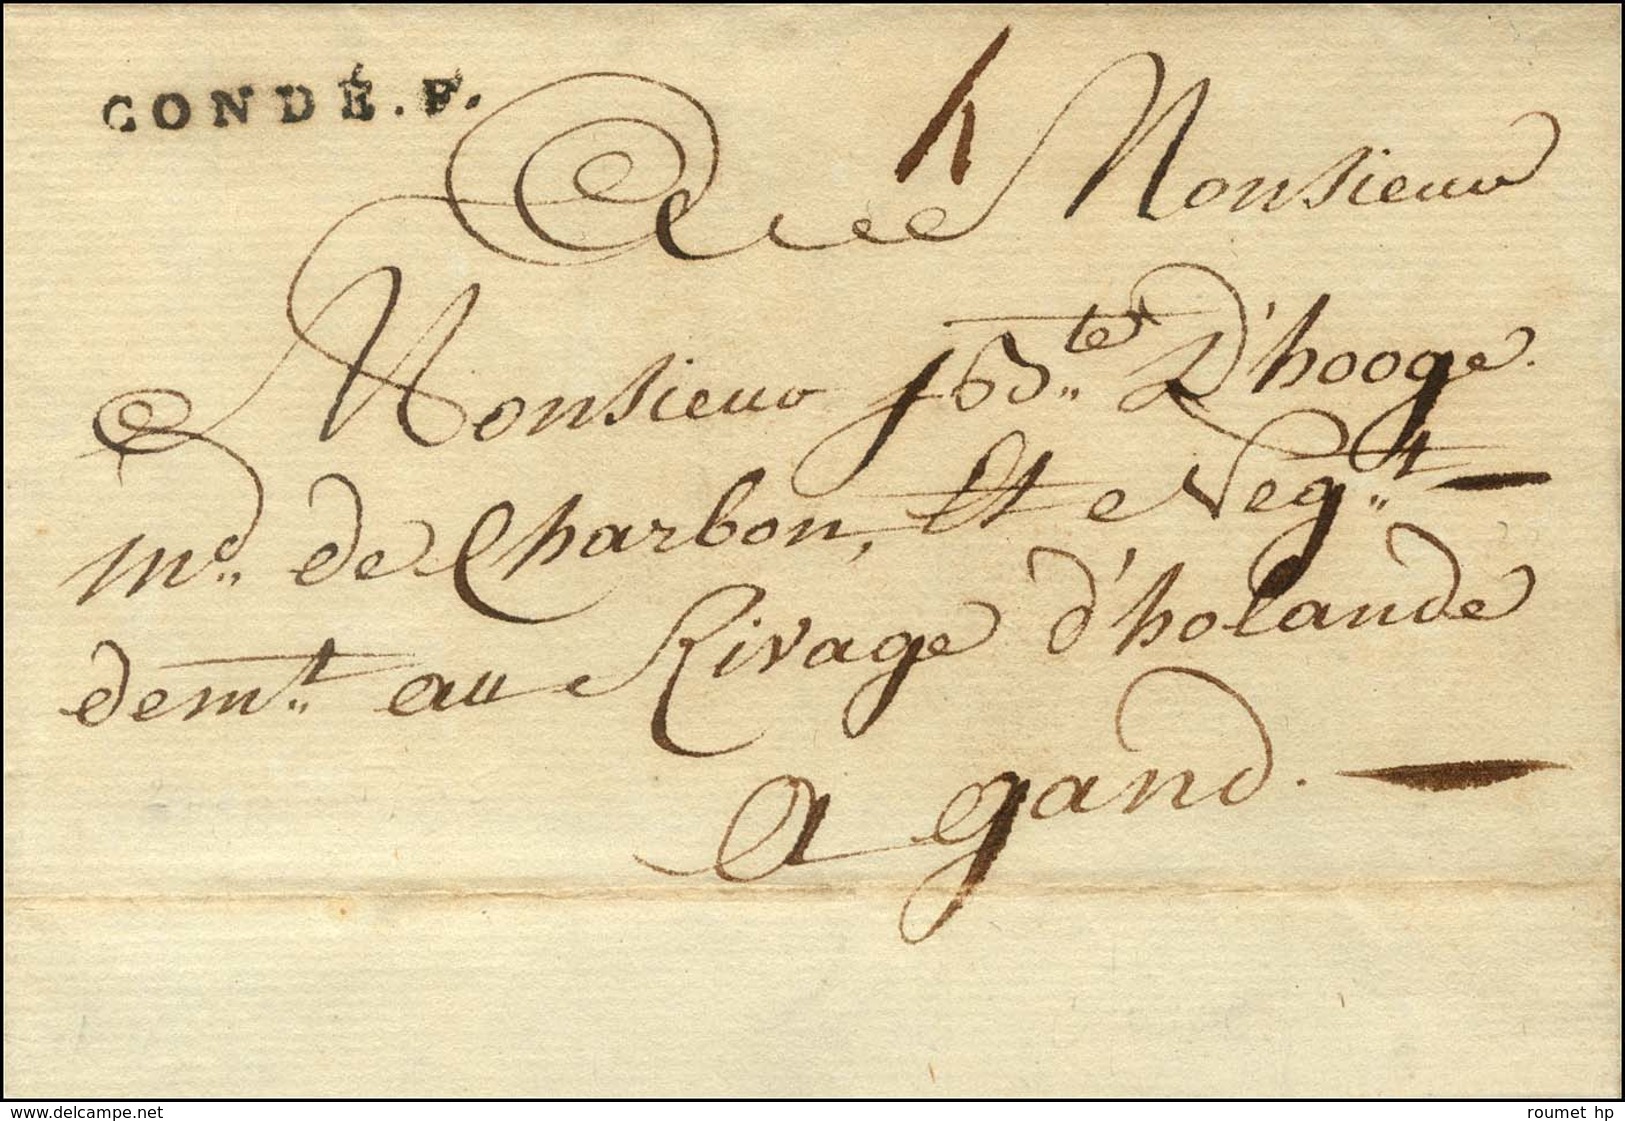 CONDÉ.F.
A Monsieur
Monsieur D'hooge.
md. de Charbon, Et Negt
demt. au Rivage d'holande
A gand.
www.delcampe.net
roumet hp